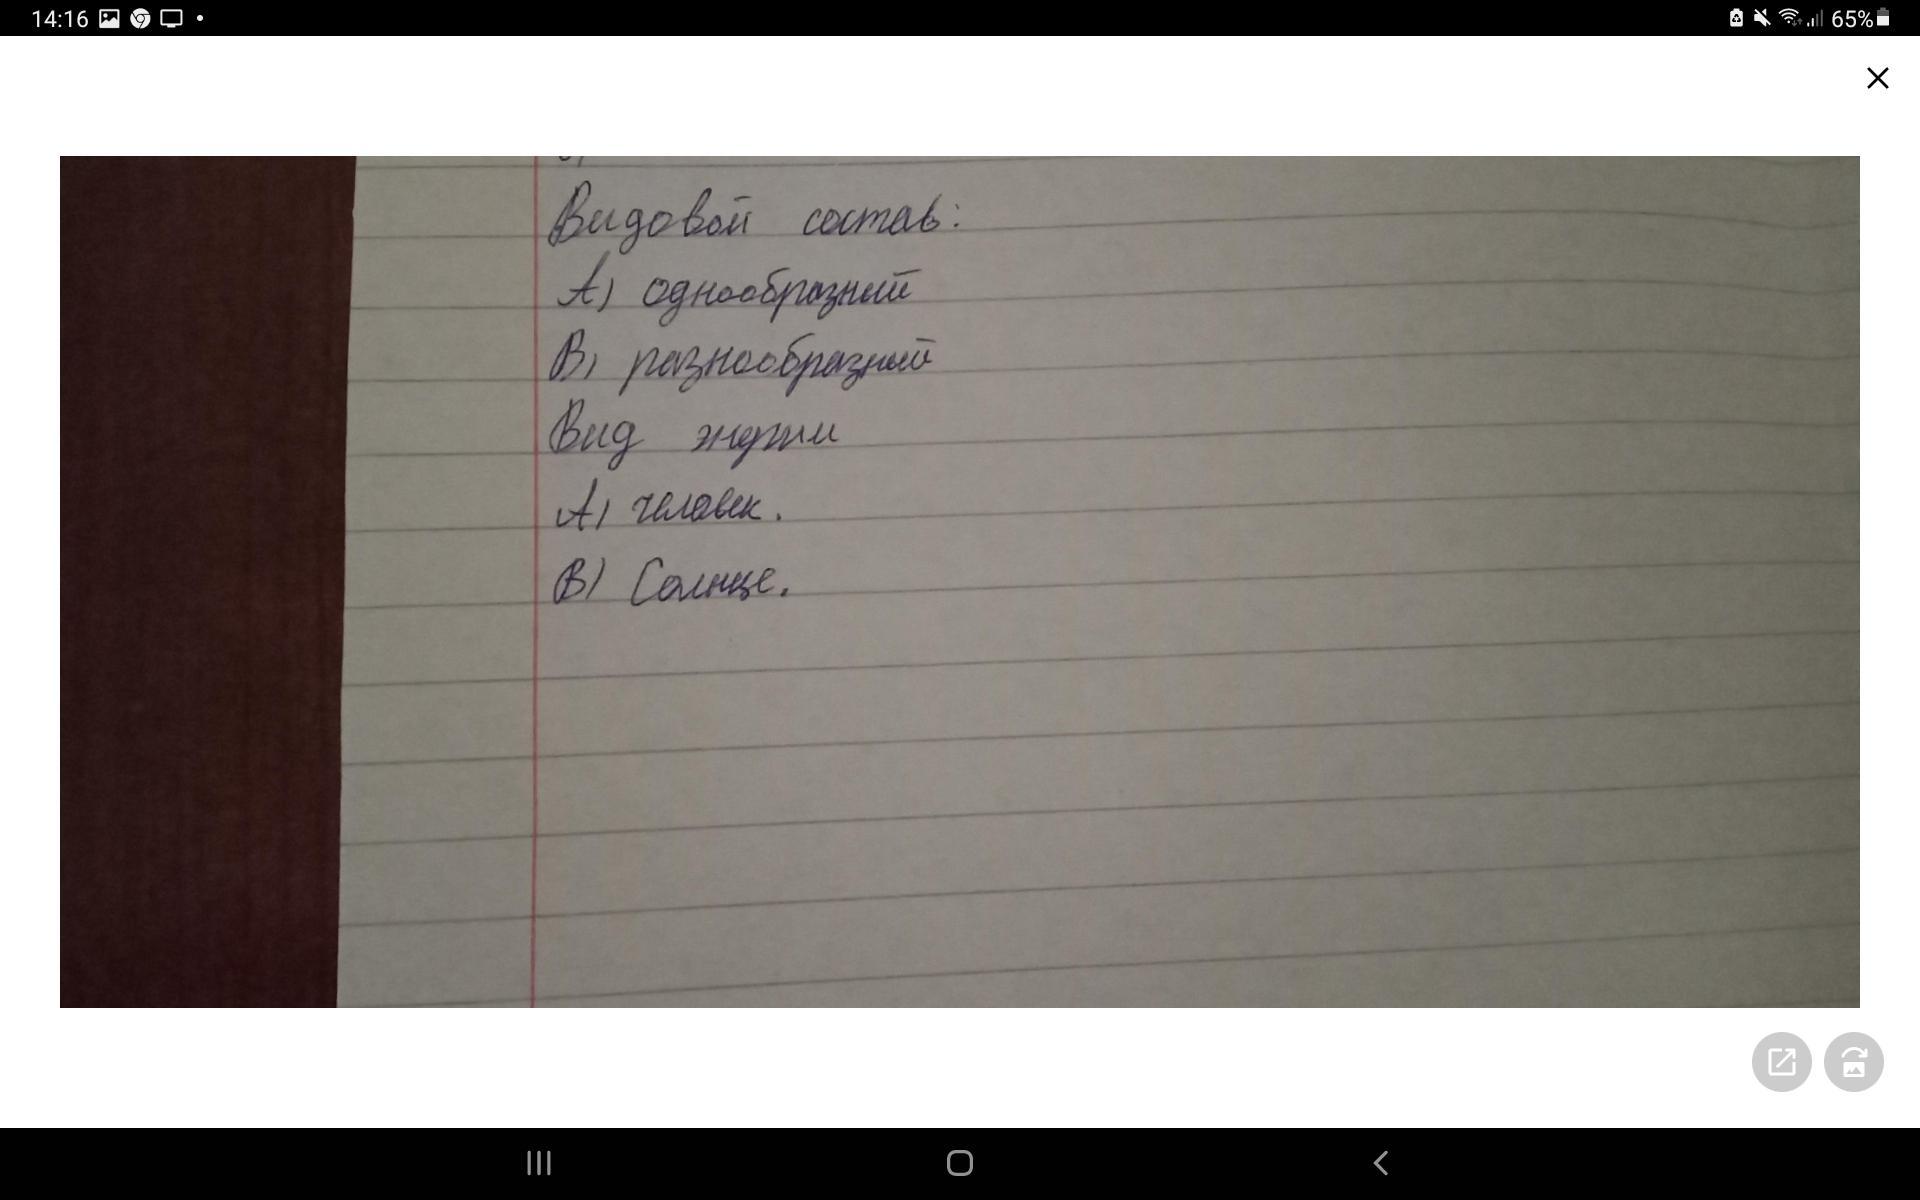 14:16
65%
Видовой состав:
А) однообразный
В) разнообразный
Вид
А) человек.
В) Солнце.